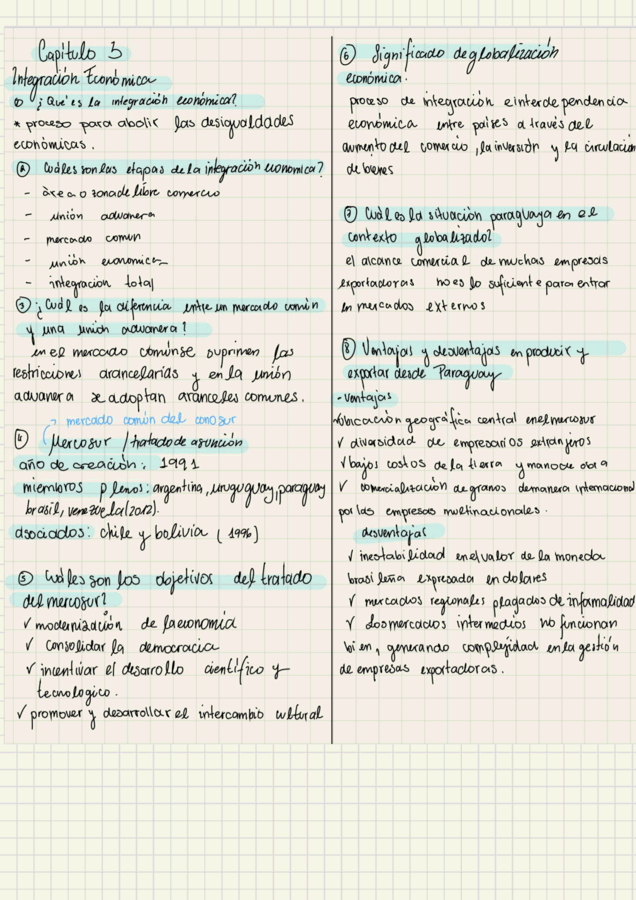 Capítulo 3
Integración Económica
① ¿Qué es la integración económica?
* proceso para abolir las desigualdades
económicas.
② Cuáles son las etapas de la integración economica?
- área o zona de libre comercio
- unión aduanera
- mercado comun
- unión economica
- integracion total
③ ¿Cuál es la diferencia entre un mercado común
y una unión aduanera?
en el mercado común se suprimen las
restricciones arancelarias y en la unión
aduanera se adoptan aranceles comunes.
mercado común del conosur
④ Mercosur / tratado de asunción
año de creación: 1991
miembros plenos: argentina, uruguguay, paraguay
brasil, venezuela (2012).
asociados: chile y bolivia (1996)
⑤ Cuáles son los objetivos del tratado
del mercosur?
✓ modernización de la economía
✓ consolidar la democracia
✓ incentivar el desarrollo científico y
tecnologico.
✓ promover y desarrollar el intercambio cultural
⑥ Significado de globalización
económica:
proceso de integración e interdependencia
económica entre paises a través del
aumento del comercio, la inversión y la circulacion
de bienes
⑦ Cuál es la situación paraguaya en el
contexto globalizado?
el alcance comercial de muchas empresas
exportadoras no es lo suficiente para entrar
en mercados externos
⑧ Ventajas y desventajas en producir y
exportar desde Paraguay
- ventajas
✓ ubicación geográfica central en el mercosur
✓ diversidad de empresarios extranjeros
✓ bajos costos de la tierra y mano de obra
✓ comercialización de granos de manera internacional
por las empresas multinacionales.
desventajas
✓ inestabilidad en el valor de la moneda
brasileña expresada en dolares
✓ mercados regionales plagados de informalidad
✓ los mercados intermedios no funcionan
bien, generando complejidad en la gestión
de empresas exportadoras.